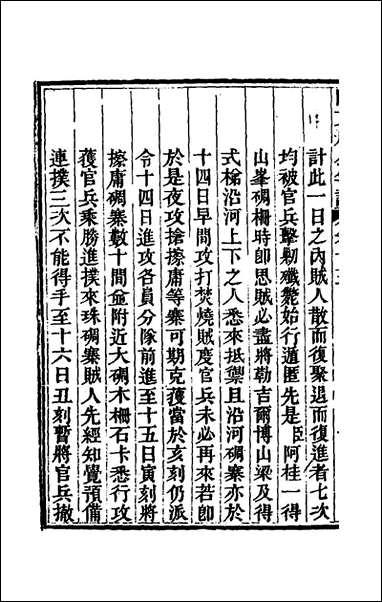 計此一日之內賊人散而復聚退而復進者七次
均被官兵擊剿殲斃始行遁匿先是臣阿桂一得
山峯碉柵時卽思賊必盡將勒吉爾博山梁及得
式梯沿河上下之人悉來抵禦且沿河碉寨亦於
十四日早間攻打焚燒賊度官兵未必再來若卽
於是夜攻搶擦庸等寨可期克獲當於亥刻仍派
令十四日進攻各員分隊前進至十五日寅刻將
擦庸碉寨數十間並附近大碉木柵石卡悉行攻
獲官兵乘勝進撲來珠碉寨賊人先經知覺預備
連撲三次不能得手至十六日丑刻暫將官兵撤